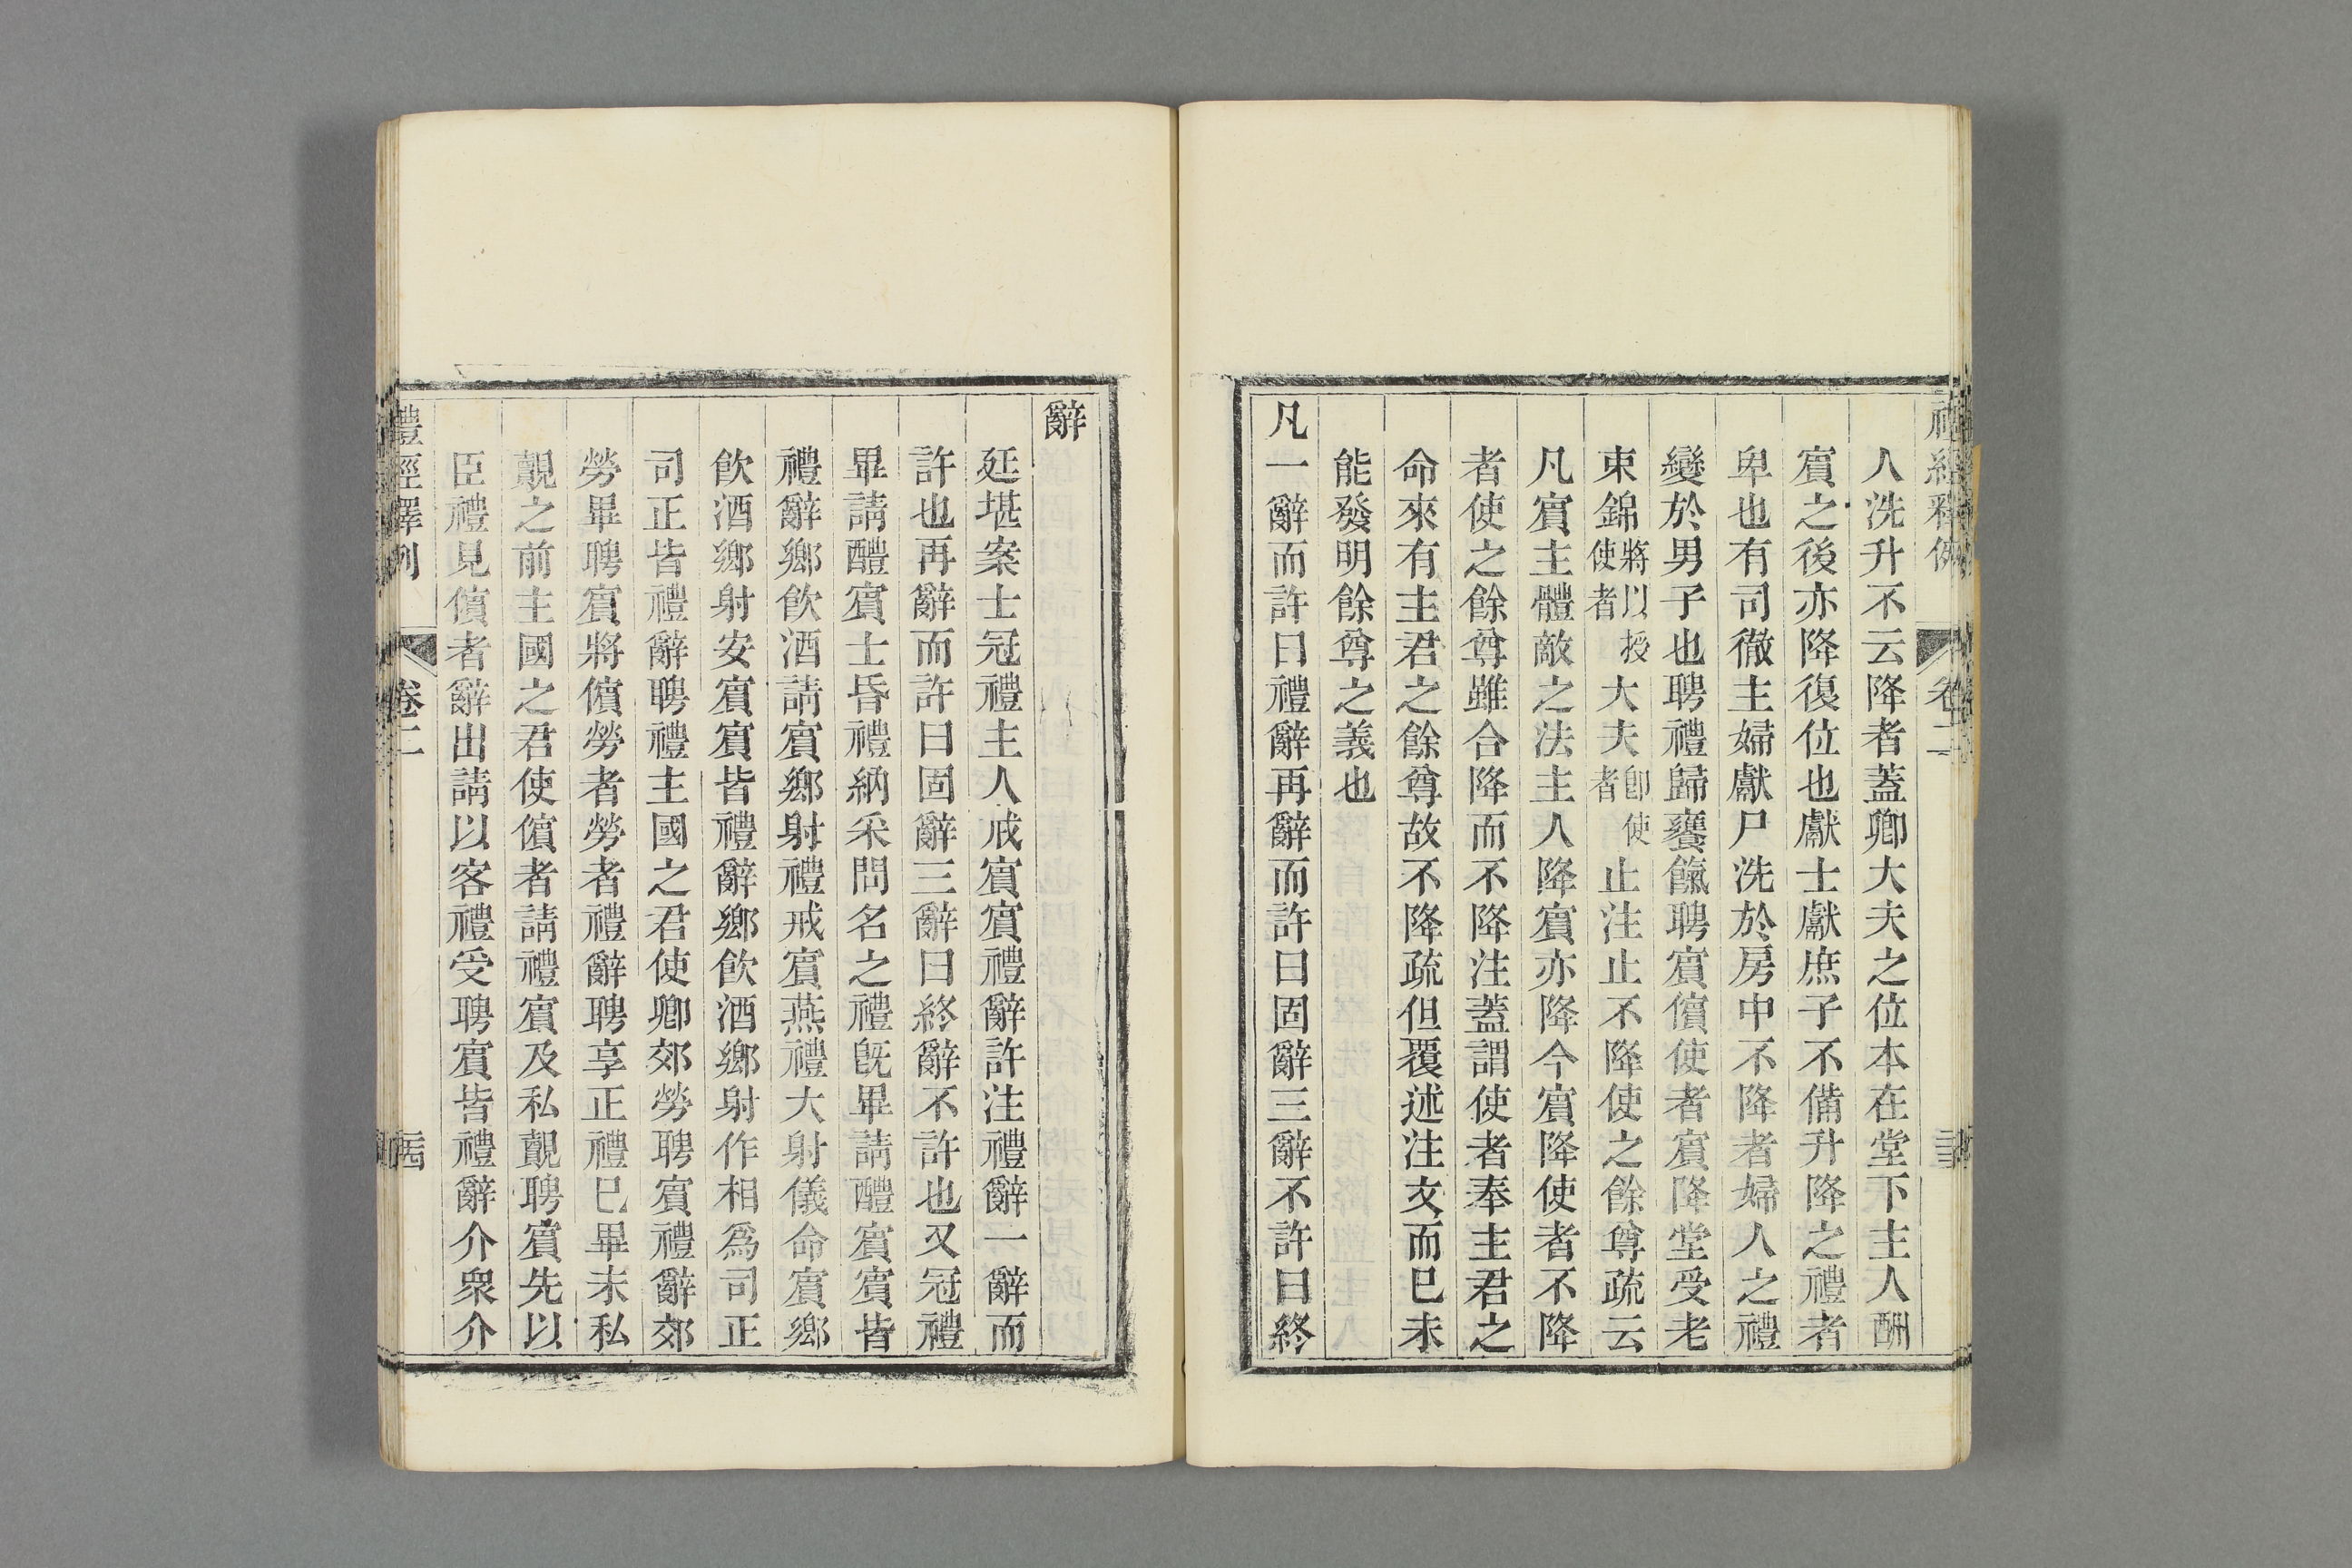 禮經釋例 卷二
人洗升不云降者蓋卿大夫之位本在堂下主人酬
賓之後亦降復位也獻士獻庶子不備升降之禮者
卑也有司徹主婦獻尸洗於房中不降者婦人之禮
變於男子也聘禮歸饔餼聘賓儐使者賓降堂受老
束錦將以授使者大夫卽使者止注止不降使之餘尊疏云
凡賓主體敵之法主人降賓亦降今賓降使者不降
者使之餘尊雖合降而不降注蓋謂使者奉主君之
命來有主君之餘尊故不降疏但覆述注文而已未
能發明餘尊之義也
凡一辭而許曰禮辭再辭而許曰固辭三辭不許曰終
辭
廷堪案士冠禮主人戒賓賓禮辭許注禮辭一辭而
許也再辭而許曰固辭三辭曰終辭不許也又冠禮
畢請醴賓士昏禮納采問名之禮旣畢請醴賓賓皆
禮辭鄉飲酒請賓鄉射禮戒賓燕禮大射儀命賓鄉
飲酒鄉射安賓賓皆禮辭鄉飲酒鄉射作相爲司正
司正皆禮辭聘禮主國之君使卿郊勞聘賓禮辭郊
勞畢聘賓將儐勞者勞者禮辭聘享正禮已畢未私
覿之前主國之君使儐者請禮賓及私覿聘賓先以
臣禮見儐者辭出請以客禮受聘賓皆禮辭介眾介
禮經釋例 卷二